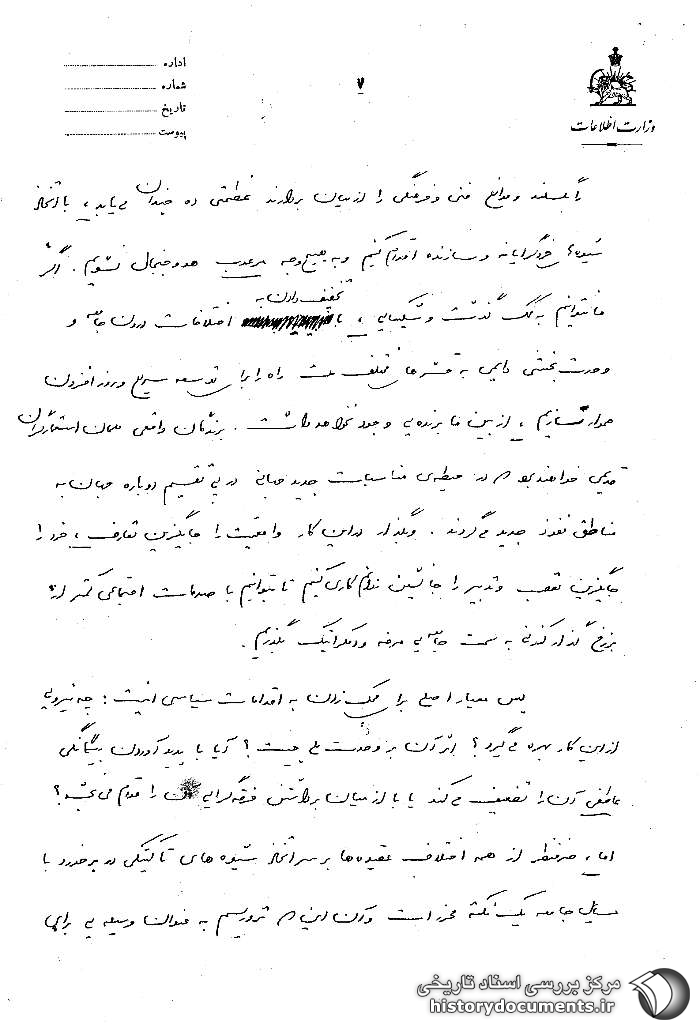 اداره
شماره
تاریخ
پیوست
۷
وزارت اطلاعات
را بگسلند و موانع فنی و فرهنگی را از میان بردارند عظمتی ده چندان می‌یابد، با اتخاذ
شیوه‌ی خردگرایانه و سازنده اقدام کنیم و به هیچ‌وجه مرعوب هو و جنجال نشویم. اگر
ما نتوانیم به کمک گذشت و شکیبایی، با تخفیف دادن به اختلافات درون جامعه و
وحدت بخشی دایمی به قشرهای مختلف ملت راه را برای توسعه سریع و روزافزون
هموار سازیم، از بین ما برنده‌یی وجود نخواهد داشت. برندگان واقعی همان استعمارگران
قدیمی خواهند بود که در حیطه‌ی مناسبات جدید جهانی در پی تقسیم دوباره جهان به
مناطق نفوذ جدید می‌گردند. بگذار در این کار واقعیت را جایگزین تعارف، خرد را
جایگزین تعصب و تدبیر را جانشین ندانم‌کاری کنیم تا بتوانیم با صدمات اجتماعی کمتر از
برزخ گذار کنونی به سمت جامعه‌یی مرفه و دمکراتیک بگذریم.
پس معیار اصلی برای محک زدن به اقدامات سیاسی اینست: چه نیرویی
از این کار بهره می‌گیرد؟ اثر آن بر وحدت ملی چیست؟ آیا با پدید آوردن بیگانگی
عاطفی آن را تضعیف می‌کند یا با از میان برداشتن فرقه‌گرایی آن را قوام می‌بخشد؟
اما، صرفنظر از همه اختلاف عقیده‌ها بر سر اتخاذ شیوه‌های تاکتیکی در برخورد با
مسایل جامعه یک نکته محرز است و آن این که تروریسم به عنوان وسیله‌یی برای
مرکز بررسی اسناد تاریخی
historydocuments.ir